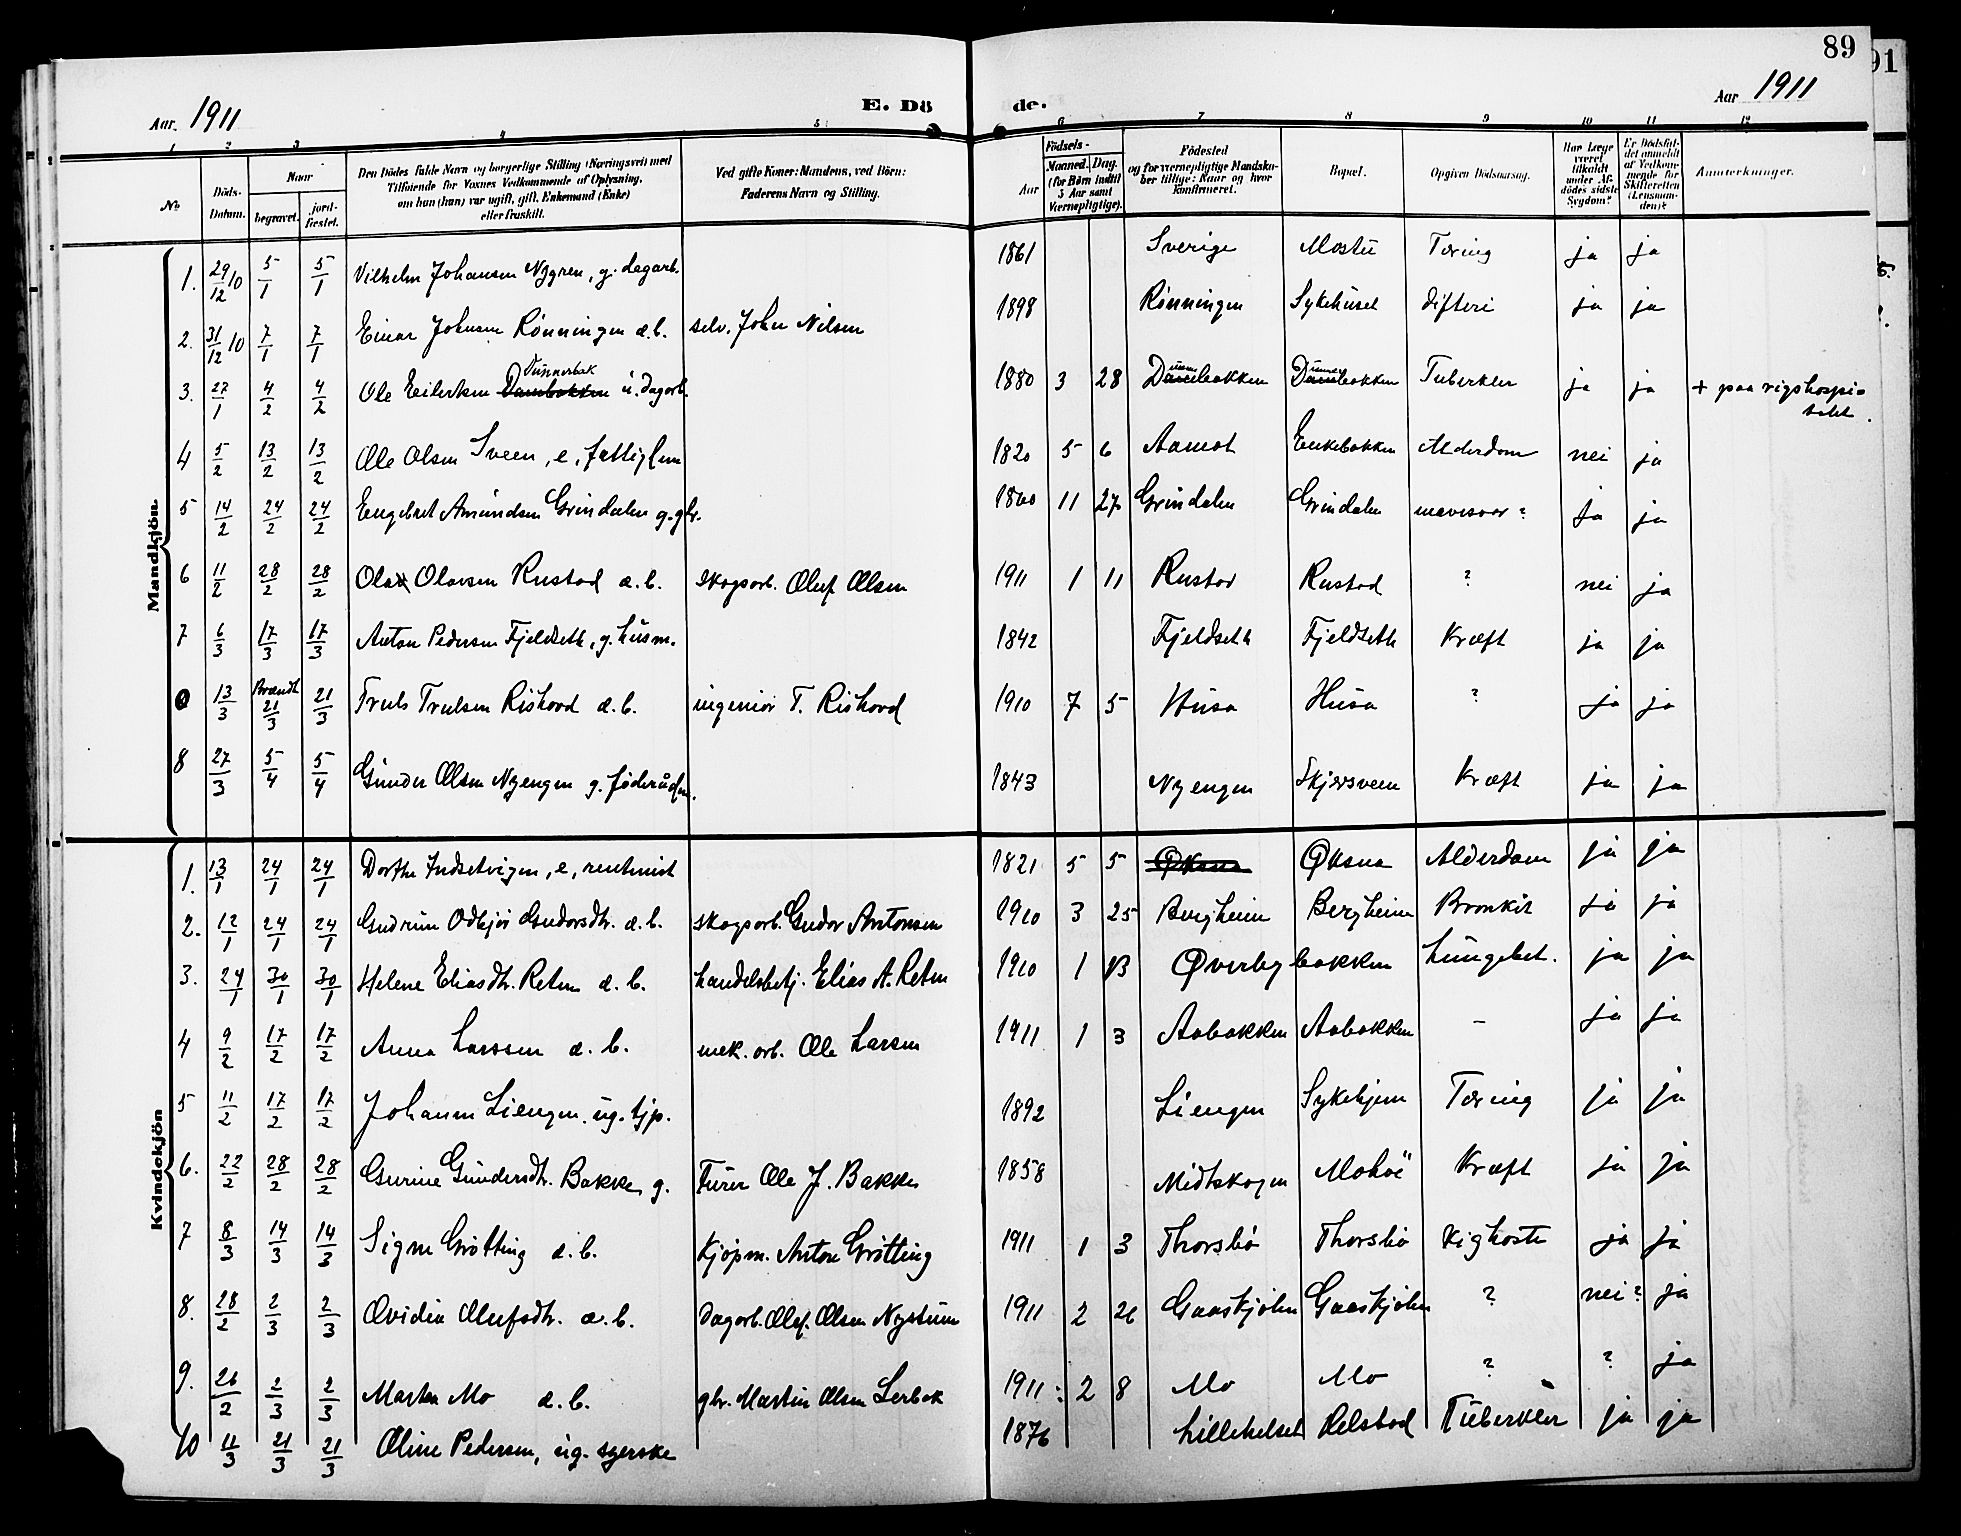 89
91
Aar 1911
E. Dö
de.
Aar 1911
1 2 3 4 5 6 7 8 9 10 11 12
No
Döds-Datum.
Naar
begravet.
jord-fæstet.
Den Dödes fulde Navn og borgerlige Stilling (Næringsvei) med
Tilföiende for Voxnes Vedkommende af Oplysning,
om hun (han) var ugift, gift, Enkemand (Enke)
eller fraskilt.
Ved gifte Koner: Mandens, ved Börn:
Faderens Navn og Stilling.
Födsels-
Aar
Maaned. Dag.
(for Börn indtil
5 Aar samt
Værnepligtige).
Födested
og for værnepligtige Mandska-
ber tillige: Naar og hvor
konfirmeret.
Bopæl.
Opgiven Dödsaarsag.
Har Læge
været
tilkaldt
under Af-
dödes sidste
Sygdom?
Er Dödsfal-
det anmeldt
af Vedkom-
mende for
Skifteretten
(Lensman-
den)?
Anmærkninger.
Mandkjön.
1. 29/12 10 5/1 5/1 Vilhelm Johansen Nygren, g. dagarb. 1861 Sverige Mostu Tæring ja ja
2. 31/12 10 7/1 7/1 Einar Johnsen Rønningen d.b. selv. John Nilsen 1898 Rønningen Sykehuset difteri ja ja
3. 27/1 4/2 4/2 Ole Eilertsen Dunnerbak u. dagarb. 1880 3 28 Tuberkler ja ja + paa rigshospi-
talet.
4 5/2 13/2 13/2 Ole Olsen Sveen, e, fattiglem 1820 5 6 Aamot Enkebakken Alderdom nei ja
5 14/2 24/2 24/2 Engebret Amundsen Grindalen g. gbr. 1860 11 27 Grindalen Grindalen mavesaar? ja ja
6 11/2 28/2 28/2 Olav Olavsen Rustad d.b. skogsarb. Oluf Olsen 1911 1 11 Rustad Rustad ? nei ja
7 6/3 17/3 17/3 Anton Pedersen Fjeldseth, g. husm. 1842 Fjeldseth Fjeldseth Kræft ja ja
13/3 Brændt 21/3 21/3 Truls Trulsen Riskovd d.b. ingeniør T. Riskovd 1910 7 5 Husa Husa ? ja ja
8 27/3 5/4 5/4 Gunder Olsen Nyengen g. føderådm. 1843 Nyengen Skjærsveen Kræft ja ja
Kvindekjön
1. 13/1 24/1 24/1 Dorthe Indsetvigen, e, rentenist 1821 5 5 Øksna Øksna Alderdom ja ja
2. 12/1 24/1 24/1 Gudrun Odbjør Gudorsdtr. d.b. skogsarb. Gudor Antonsen 1910 3 25 Bergheim Bergheim Bronkit ja ja
3. 24/1 30/1 30/1 Helene Eliasdtr. Reten d.b. handelsbetj. Elias A. Reten 1910 1 13 Øverbybakken Lungebet. ja ja
4 9/2 17/2 17/2 Anna Larssen d.b. mek. arb. Ole Larsen 1911 1 3 Aabakken Aabakken - ja ja
5 11/2 17/2 17/2 Johanne Liengen. ug. tjp. 1892 Liengen Sykehjem Tæring ja ja
6. 22/2 28/2 28/2 Gurine Gundersdtr. Bakken g. Furer Ole J. Bakken 1858 Midtskogen Kræft ja ja
7 8/3 14/3 14/3 Signe Grøtting d.b. Kjøpm. Anton Grøtting 1911 1 3 Thorsbø Thorsbø Kighoste ja ja
8. 28/2 2/3 2/3 Ovidia Olufsdtr. d.b. Dagarb. Oluf. Olsen Nystuen 1911 2 26 Gaaskjølen Gaaskjølen ? nei? ja
9. 26/2 2/3 2/3 Marta Mo d.b. gbr. Martin Olsen Lerbak 1911 2 8 Mo Mo ? ? ja
10 11/3 21/3 21/3 Oline Pedersen, ug. syerske 1876 Lillehelset Delstad Tuberkler ja ja